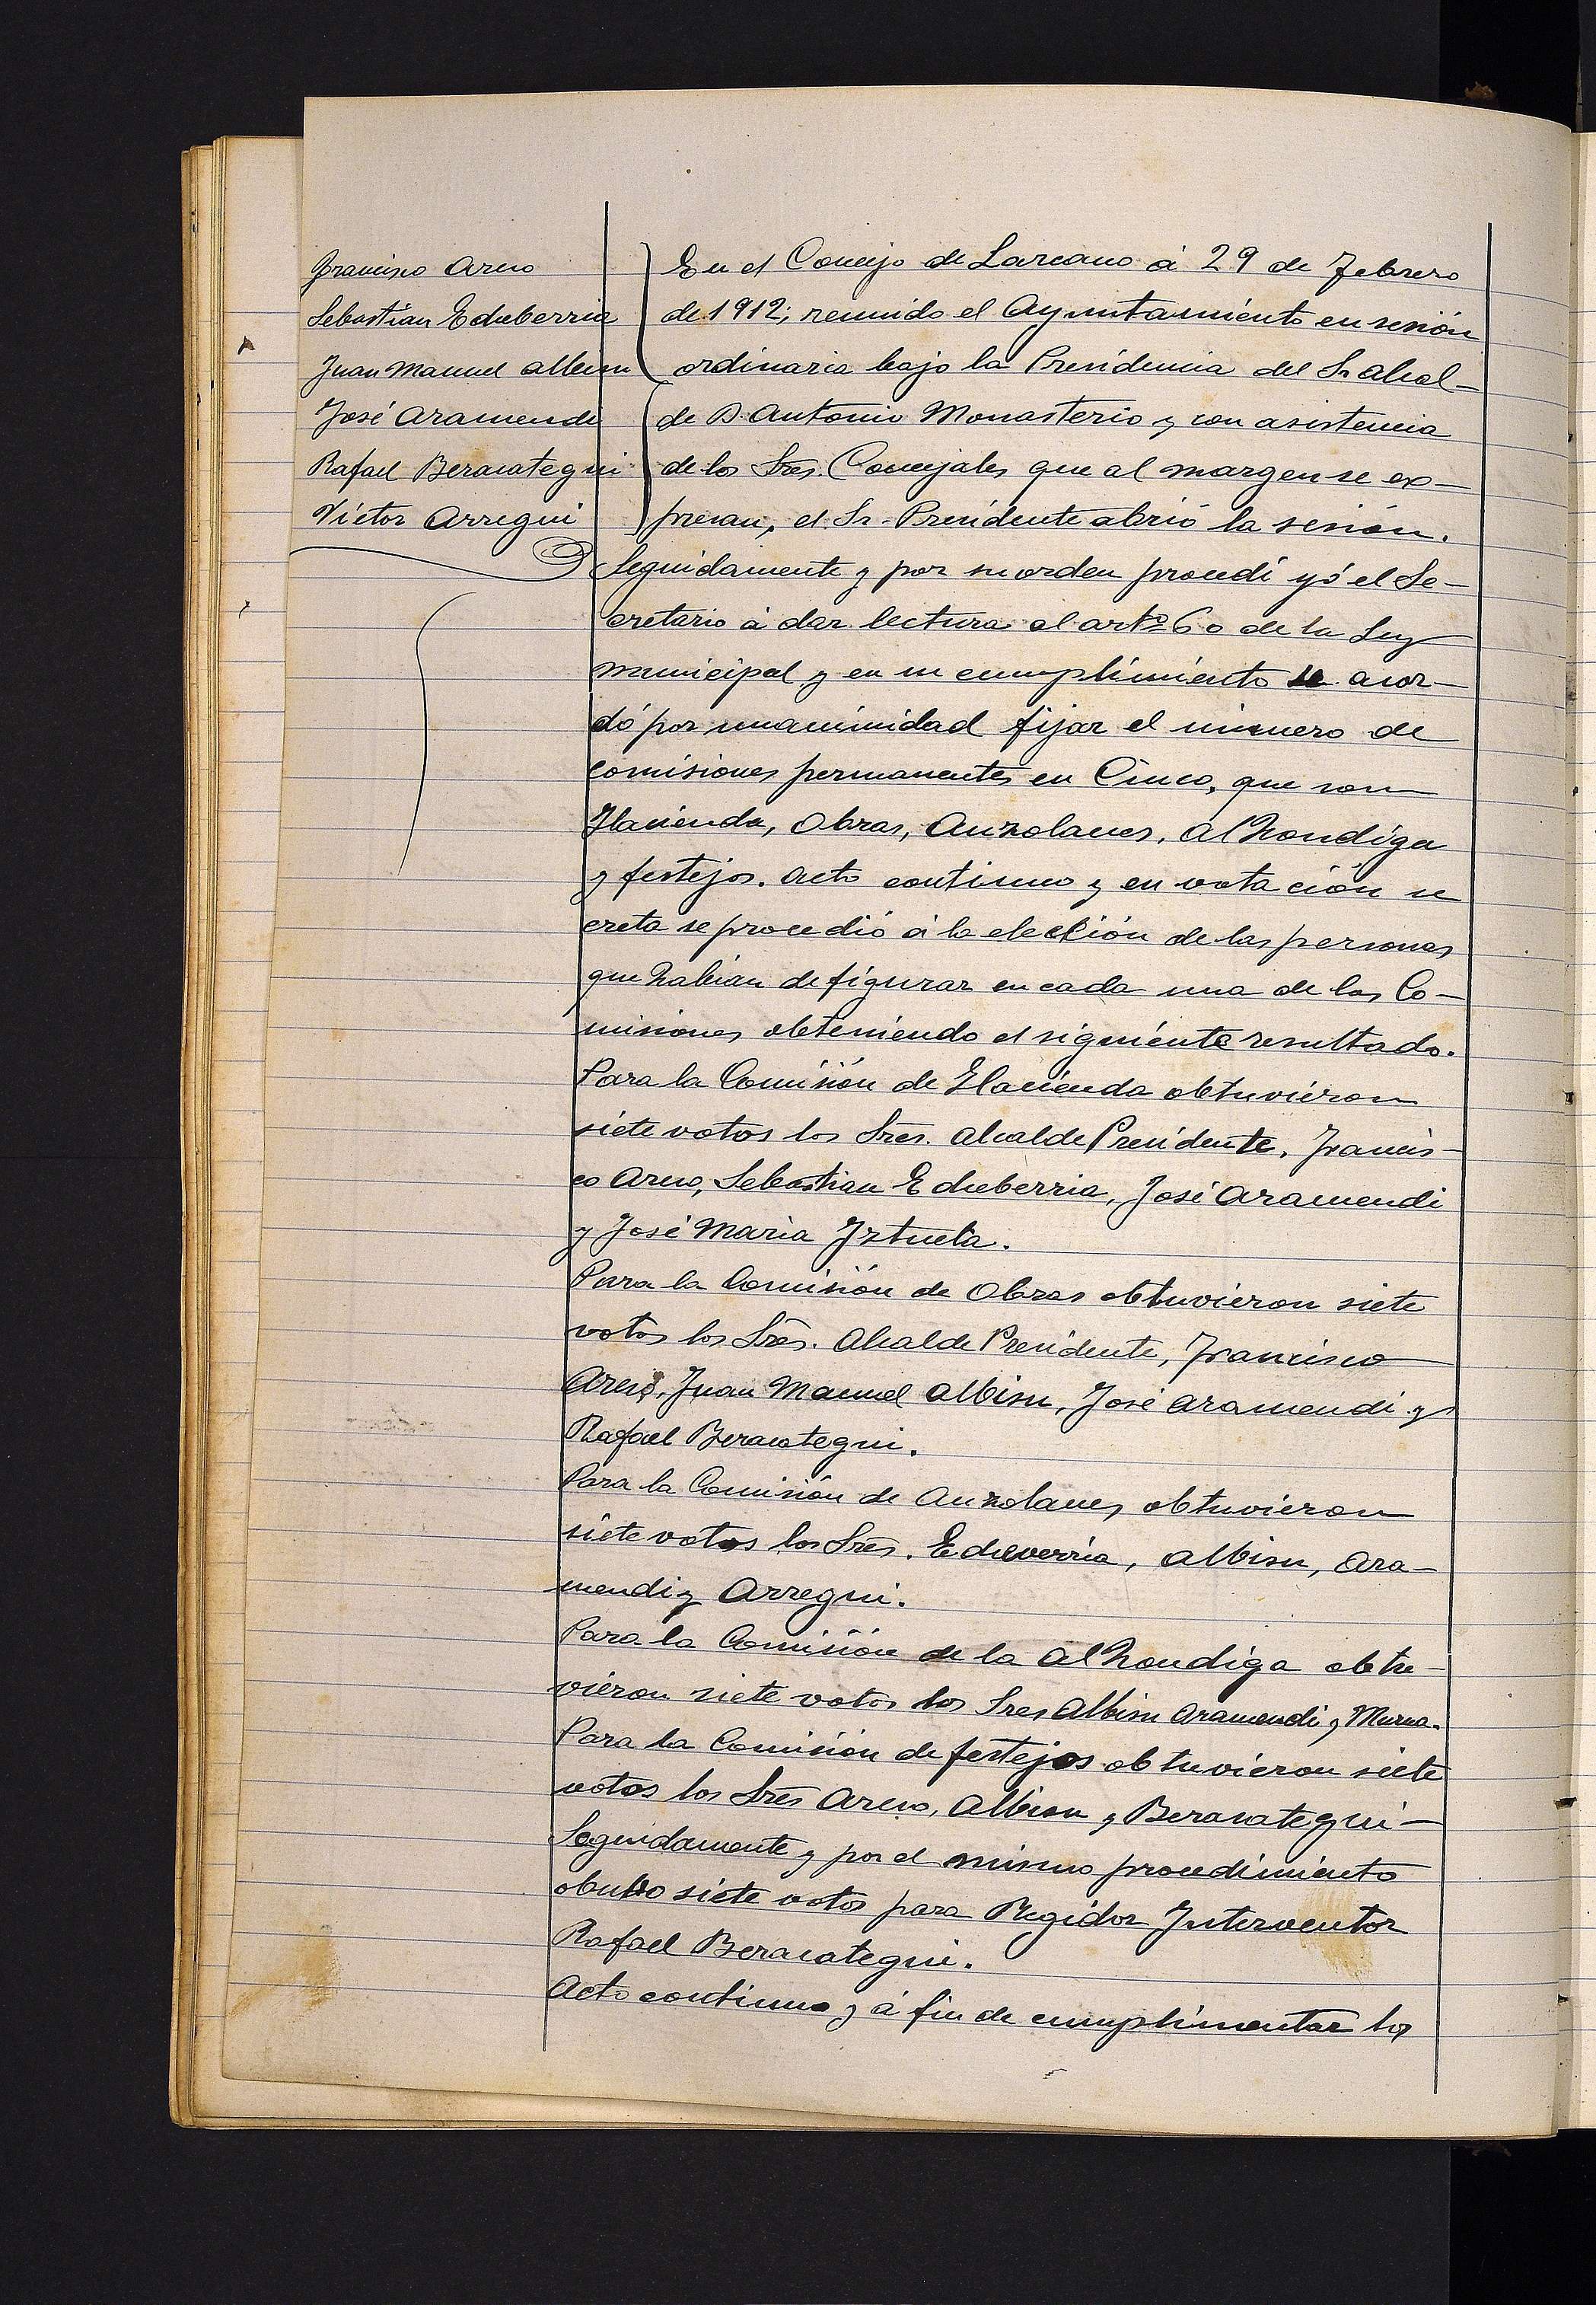 Francisco Areso
Sebastián Echeberria
Juan Manuel Albisu
José Aramendi
Rafael Beracategui
Víctor Arregui
En el Concejo de Lazcano á 29 de Febrero
de 1912; reunido el Ayuntamiento en sesión
ordinaria bajo la Presidencia del Sr Alcal-
de D Antonio Monasterio y con asistencia
de los Sres. Concejales que al margen se ex-
presan, el Sr. Presidente abrió la sesión.
Seguidamente y por su orden procedí yó el Se-
cretario á dar lectura al artº 60 de la Ley
municipal y en su cumplimiento se acor-
dó por unanimidad fijar el número de
comisiones permanentes en Cinco, que son
Hacienda, Obras, Anzolanes, Alhondiga
y festejos. Acto continuo y en votación se
creta se procedió á la elección de las personas
que habian de figurar en cada una de las Co-
misiones obteniendo el siguiente resultado.
Para la Comisión de Hacienda obtuvieron
siete votos los Sres. Alcalde Presidente, Francis-
co Areso, Sebastian Echeberria, José Aramendi
y José Maria Iztueta.
Para la Comisión de Obras obtuvieron siete
votos los Sres. Alcalde Presidente, Francisco
Areso, Juan Manuel Albisu, José Aramendi y
Rafael Beracategui.
Para la Comisión de Anzolanes obtuvieron
siete votos los Sres. Echeverria, Albisu, Ara-
mendi y Arregui.
Para la Comisión de la Alhondiga obtu-
vieron siete votos los Sres Albisu Aramendi y Murua.
Para la Comisión de festejos obtuvieron siete
votos los Sres Areso, Albisu y Beracategui-
Seguidamente y por el mismo procedimiento
obtubo siete votos para Regidor Interventor
Rafael Beracategui.
Acto continuo y á fin de cumplimentar los